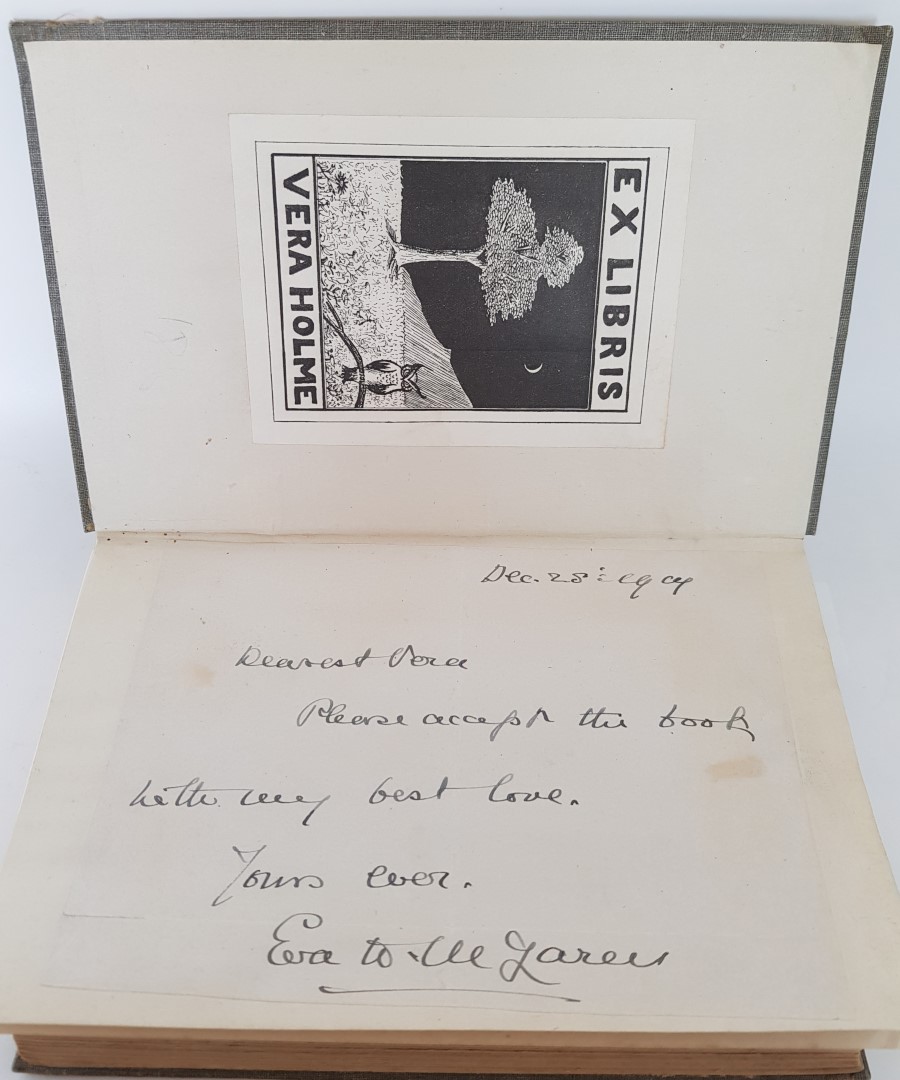 EX LIBRIS
VERA HOLME
Dec. 28
Dearest Vera
Please accept this book
with my best love.
Yours ever.
Eva McLaren